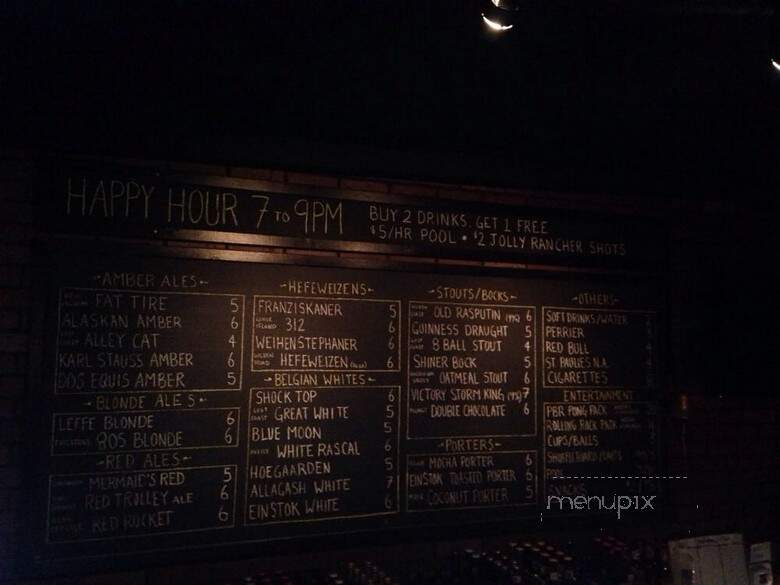 HAPPY HOUR 7 TO 9PM
BUY 2 DRINKS, GET 1 FREE
$5/HR POOL • $2 JOLLY RANCHER SHOTS
AMBER ALES
FAT TIRE 5
ALASKAN AMBER 6
ALLEY CAT 4
KARL STAUSS AMBER 6
DOS EQUIS AMBER 5
BLONDE ALES
LEFFE BLONDE 6
805 BLONDE 6
RED ALES
MERMAID'S RED 5
RED TROLLEY ALE 6
RED ROCKET 6
HEFEWEIZENS
FRANZISKANER 5
312 6
WEIHENSTEPHANER 6
HEFEWEIZEN 6
BELGIAN WHITES
SHOCK TOP 6
GREAT WHITE 5
BLUE MOON 5
WHITE RASCAL 6
HOEGAARDEN 5
ALLAGASH WHITE 7
EINSTOK WHITE 6
STOUTS/BOCKS
OLD RASPUTIN 6
GUINNESS DRAUGHT 5
8 BALL STOUT 4
SHINER BOCK 5
OATMEAL STOUT 6
VICTORY STORM KING 7
DOUBLE CHOCOLATE 6
PORTERS
MOCHA PORTER 6
EINSTOK TOASTED PORTER 6
COCONUT PORTER 5
OTHERS
SOFT DRINKS/WATER
PERRIER
RED BULL
ST PAULIES N.A.
CIGARETTES
ENTERTAINMENT
PBR PONG PACK
ROLLING ROCK PACK
CUPS/BALLS
POOL
menupix